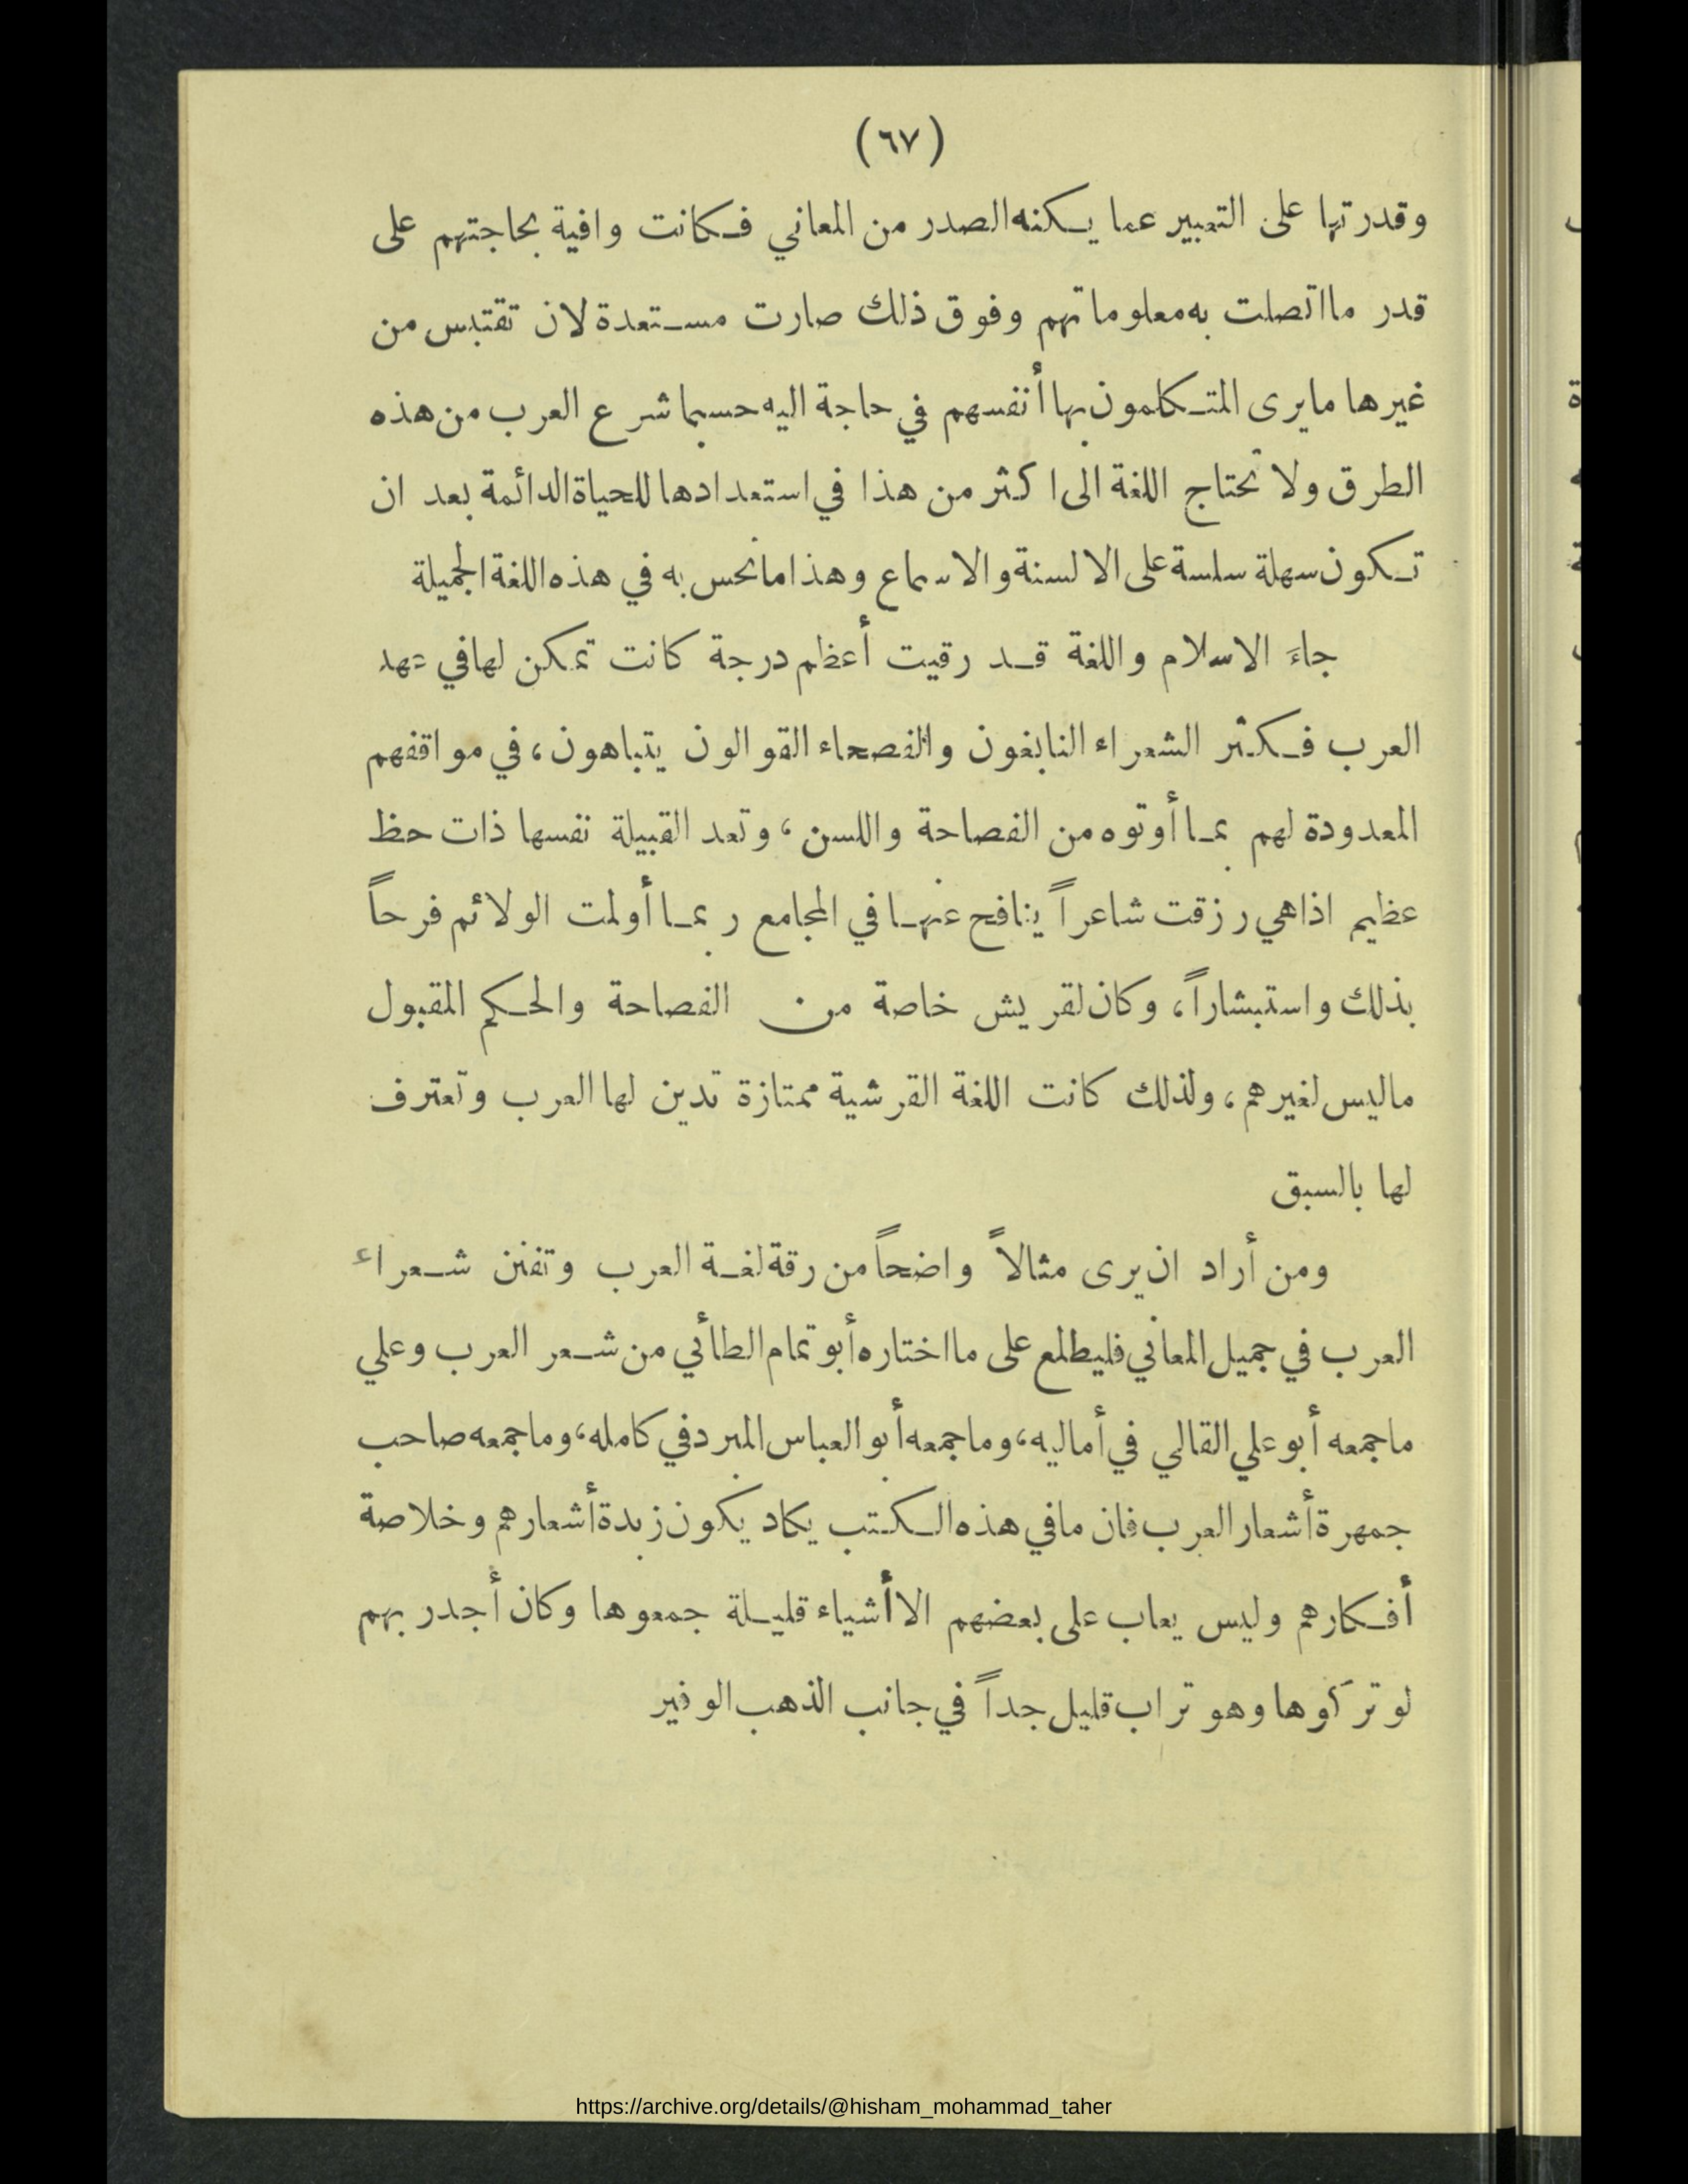 (٦٧)
وقدرتها على التعبير عما يكنه الصدر من المعاني فكانت وافية بحاجتهم على
قدر ما اتصلت به معلوماتهم وفوق ذلك صارت مستعدة لان تقتبس من
غيرها ما يرى المتكلمون بها أنفسهم في حاجة اليه حسبما شرع العرب من هذه
الطرق ولا تحتاج اللغة الى اكثر من هذا في استعدادها للحياة الدائمة بعد ان
تكون سهلة سلسة على الالسنة والاسماع وهذا ما نحس به في هذه اللغة الجميلة
جاءَ الاسلام واللغة قد رقيت أعظم درجة كانت تمكن لها في عهد
العرب فكثر الشعراء النابغون والفصحاء القوالون يتباهون، في مواقفهم
المعدودة لهم بما أوتوه من الفصاحة واللسن، وتعد القبيلة نفسها ذات حظ
عظيم اذا هي رزقت شاعراً ينافح عنها في المجامع ربما أولمت الولائم فرحاً
بذلك واستبشاراً، وكان لقريش خاصة من الفصاحة والحكم المقبول
ما ليس لغيرهم، ولذلك كانت اللغة القرشية ممتازة تدين لها العرب وتعترف
لها بالسبق
ومن أراد ان يرى مثالاً واضحاً من رقة لغة العرب وتفنن شعراء
العرب في جميل المعاني فليطلع على ما اختاره أبو تمام الطائي من شعر العرب وعلي
ما جمعه أبو علي القالي في أماليه، وما جمعه أبو العباس المبرد في كامله، وما جمعه صاحب
جمهرة أشعار العرب فان ما في هذه الكتب يكاد يكون زبدة أشعارهم وخلاصة
أفكارهم وليس يعاب على بعضهم الا أشياء قليلة جمعوها وكان أجدر بهم
لو تركوها وهو تراب قليل جداً في جانب الذهب الوفير
https://archive.org/details/@hisham_mohammad_taher